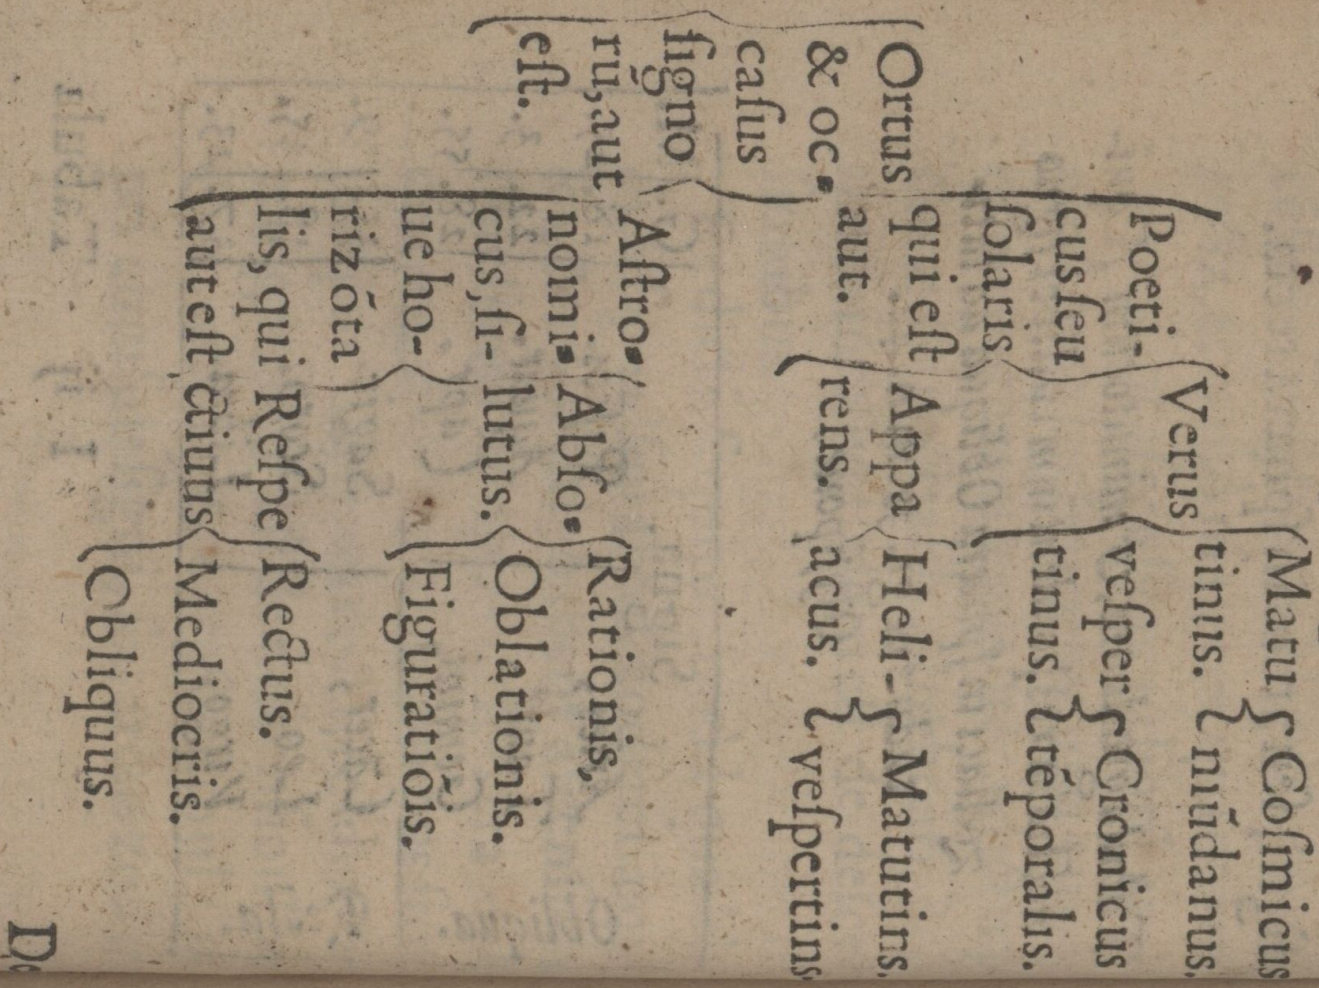 Ortus
& oc-
caſus
ſigno
rū, aut
eſt.
Poeti-
cus ſeu
ſolaris
qui eſt
aut.
Verus
Matu
tinus.
Coſmicus
mūdanus.
veſper
tinus.
Cronicus
tēporalis.
Appa
rens.
Heli-
acus.
Matutins.
veſpertins
Aſtro-
nomi-
cus, ſi-
ue ho-
rizōta
lis, qui
aut eſt
Abſo-
lutus.
Rationis,
Oblationis.
Figuratiōis.
Reſpe
ctiuus
Rectus.
Mediocris.
Obliquus.